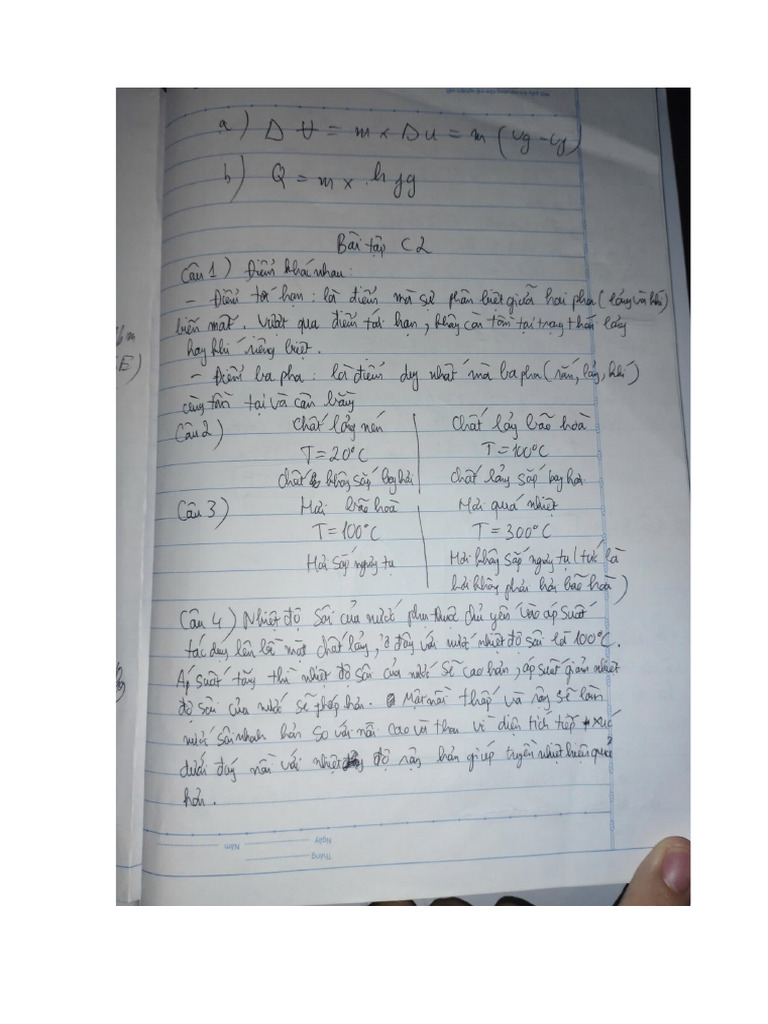 a) ΔU = m × Δu = m (ug - uf)
b) Q = m × hfg
Bài tập C2
Câu 1) Điểm khác nhau:
- Điểm tới hạn: là điểm mà sự phân biệt giữa hai pha (lỏng và khí)
biến mất. Vượt qua điểm tới hạn, không còn tồn tại trạng thái lỏng
hay khí riêng biệt.
- Điểm ba pha: là điểm duy nhất mà ba pha (rắn, lỏng, khí)
cùng tồn tại và cân bằng
Câu 2) Chất lỏng nén Chất lỏng bão hoà
T = 20°C T = 100°C
Chất không sắp bay hơi Chất lỏng sắp bay hơi
Câu 3) Hơi bão hoà Hơi quá nhiệt
T = 100°C T = 300°C
Hơi sắp ngưng tụ Hơi không sắp ngưng tụ (tức là
hơi không phải hơi bão hoà)
Câu 4) Nhiệt độ sôi của nước phụ thuộc chủ yếu vào áp suất
tác dụng lên bề mặt chất lỏng, ở đây với nước nhiệt độ sôi là 100°C.
Áp suất tăng thì nhiệt độ sôi của nước sẽ cao hơn, áp suất giảm nhiệt
độ sôi của nước sẽ thấp hơn. Một nồi thấp và rộng sẽ làm
nước sôi nhanh hơn so với nồi cao và thon vì diện tích tiếp xúc
dưới đáy nồi với nhiệt độ rộng hơn giúp truyền nhiệt hiệu quả
hơn.
Ngày
Tháng
Năm